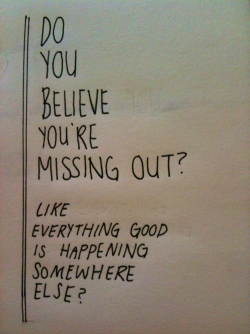 DO
YOU
BELIEVE
YOU'RE
MISSING OUT?
LIKE
EVERYTHING GOOD
IS HAPPENING
SOMEWHERE
ELSE?